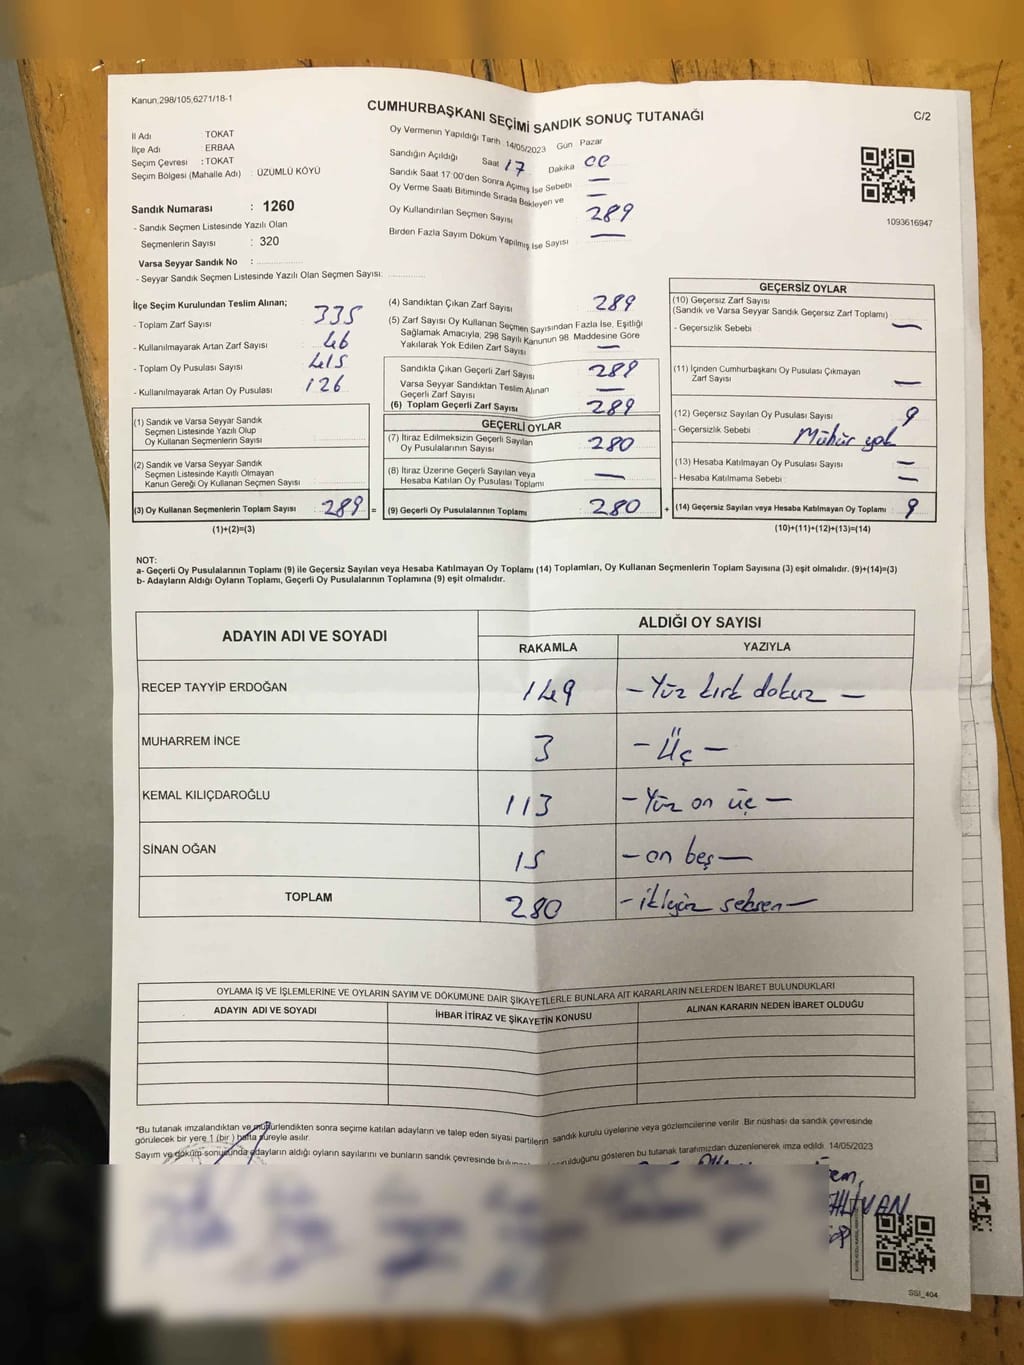 Kanun,298/105,6271/18-1
CUMHURBAŞKANI SEÇİMİ SANDIK SONUÇ TUTANAĞI
C/2
İl Adı TOKAT
İlçe Adı ERBAA
Seçim Çevresi : TOKAT
Seçim Bölgesi (Mahalle Adı) : ÜZÜMLÜ KÖYÜ
Sandık Numarası : 1260
- Sandık Seçmen Listesinde Yazılı Olan
Seçmenlerin Sayısı : 320
Varsa Seyyar Sandık No :
- Seyyar Sandık Seçmen Listesinde Yazılı Olan Seçmen Sayısı:
Oy Vermenin Yapıldığı Tarih 14/05/2023 Gün Pazar
Sandığın Açıldığı Saat 17 Dakika 00
Sandık Saat 17:00'den Sonra Açılmış İse Sebebi —
Oy Verme Saati Bitiminde Sırada Bekleyen ve —
Oy Kullandırılan Seçmen Sayısı 289
Birden Fazla Sayım Döküm Yapılmış İse Sayısı —
1093616947
İlçe Seçim Kurulundan Teslim Alınan;
- Toplam Zarf Sayısı 335
- Kullanılmayarak Artan Zarf Sayısı 46
- Toplam Oy Pusulası Sayısı 415
- Kullanılmayarak Artan Oy Pusulası 126
(1) Sandık ve Varsa Seyyar Sandık
Seçmen Listesinde Yazılı Olup
Oy Kullanan Seçmenlerin Sayısı
(2) Sandık ve Varsa Seyyar Sandık
Seçmen Listesinde Kayıtlı Olmayan
Kanun Gereği Oy Kullanan Seçmen Sayısı
(3) Oy Kullanan Seçmenlerin Toplam Sayısı 289 =
(1)+(2)=(3)
(4) Sandıktan Çıkan Zarf Sayısı 289
(5) Zarf Sayısı Oy Kullanan Seçmen Sayısından Fazla İse, Eşitliği
Sağlamak Amacıyla, 298 Sayılı Kanunun 98. Maddesine Göre
Yakılarak Yok Edilen Zarf Sayısı —
Sandıkta Çıkan Geçerli Zarf Sayısı 289
Varsa Seyyar Sandıktan Teslim Alınan
Geçerli Zarf Sayısı —
(6) Toplam Geçerli Zarf Sayısı 289
GEÇERLİ OYLAR
(7) İtiraz Edilmeksizin Geçerli Sayılan
Oy Pusulalarının Sayısı 280
(8) İtiraz Üzerine Geçerli Sayılan veya
Hesaba Katılan Oy Pusulası Toplamı —
(9) Geçerli Oy Pusulalarının Toplamı 280 +
GEÇERSİZ OYLAR
(10) Geçersiz Zarf Sayısı
(Sandık ve Varsa Seyyar Sandık Geçersiz Zarf Toplamı)
- Geçersizlik Sebebi —
(11) İçinden Cumhurbaşkanı Oy Pusulası Çıkmayan
Zarf Sayısı —
(12) Geçersiz Sayılan Oy Pusulası Sayısı 9
- Geçersizlik Sebebi Mühür yok
(13) Hesaba Katılmayan Oy Pusulası Sayısı —
- Hesaba Katılmama Sebebi —
(14) Geçersiz Sayılan veya Hesaba Katılmayan Oy Toplamı 9
(10)+(11)+(12)+(13)=(14)
NOT:
a- Geçerli Oy Pusulalarının Toplamı (9) ile Geçersiz Sayılan veya Hesaba Katılmayan Oy Toplamı (14) Toplamları, Oy Kullanan Seçmenlerin Toplam Sayısına (3) eşit olmalıdır. (9)+(14)=(3)
b- Adayların Aldığı Oyların Toplamı, Geçerli Oy Pusulalarının Toplamına (9) eşit olmalıdır.
ADAYIN ADI VE SOYADI ALDIĞI OY SAYISI
RAKAMLA YAZIYLA
RECEP TAYYİP ERDOĞAN 149 – Yüz kırk dokuz –
MUHARREM İNCE 3 – Üç –
KEMAL KILIÇDAROĞLU 113 – Yüz on üç –
SİNAN OĞAN 15 – on beş –
TOPLAM 280 – ikiyüz seksen –
OYLAMA İŞ VE İŞLEMLERİNE VE OYLARIN SAYIM VE DÖKÜMÜNE DAİR ŞİKAYETLERLE BUNLARA AİT KARARLARIN NELERDEN İBARET BULUNDUKLARI
ADAYIN ADI VE SOYADI İHBAR İTİRAZ VE ŞİKAYETİN KONUSU ALINAN KARARIN NEDEN İBARET OLDUĞU
*Bu tutanak imzalandıktan ve mühürlendikten sonra seçime katılan adayların ve talep eden siyasi partilerin sandık kurulu üyelerine veya gözlemcilerine verilir. Bir nüshası da sandık çevresinde
görülecek bir yere 1 (bir) hafta süreyle asılır.
Sayım ve döküm sonucunda adayların aldığı oyların sayılarını ve bunların sandık çevresinde gösteren bu tutanak tarafımızdan düzenlenerek imza edildi. 14/05/2023
SSİ_404